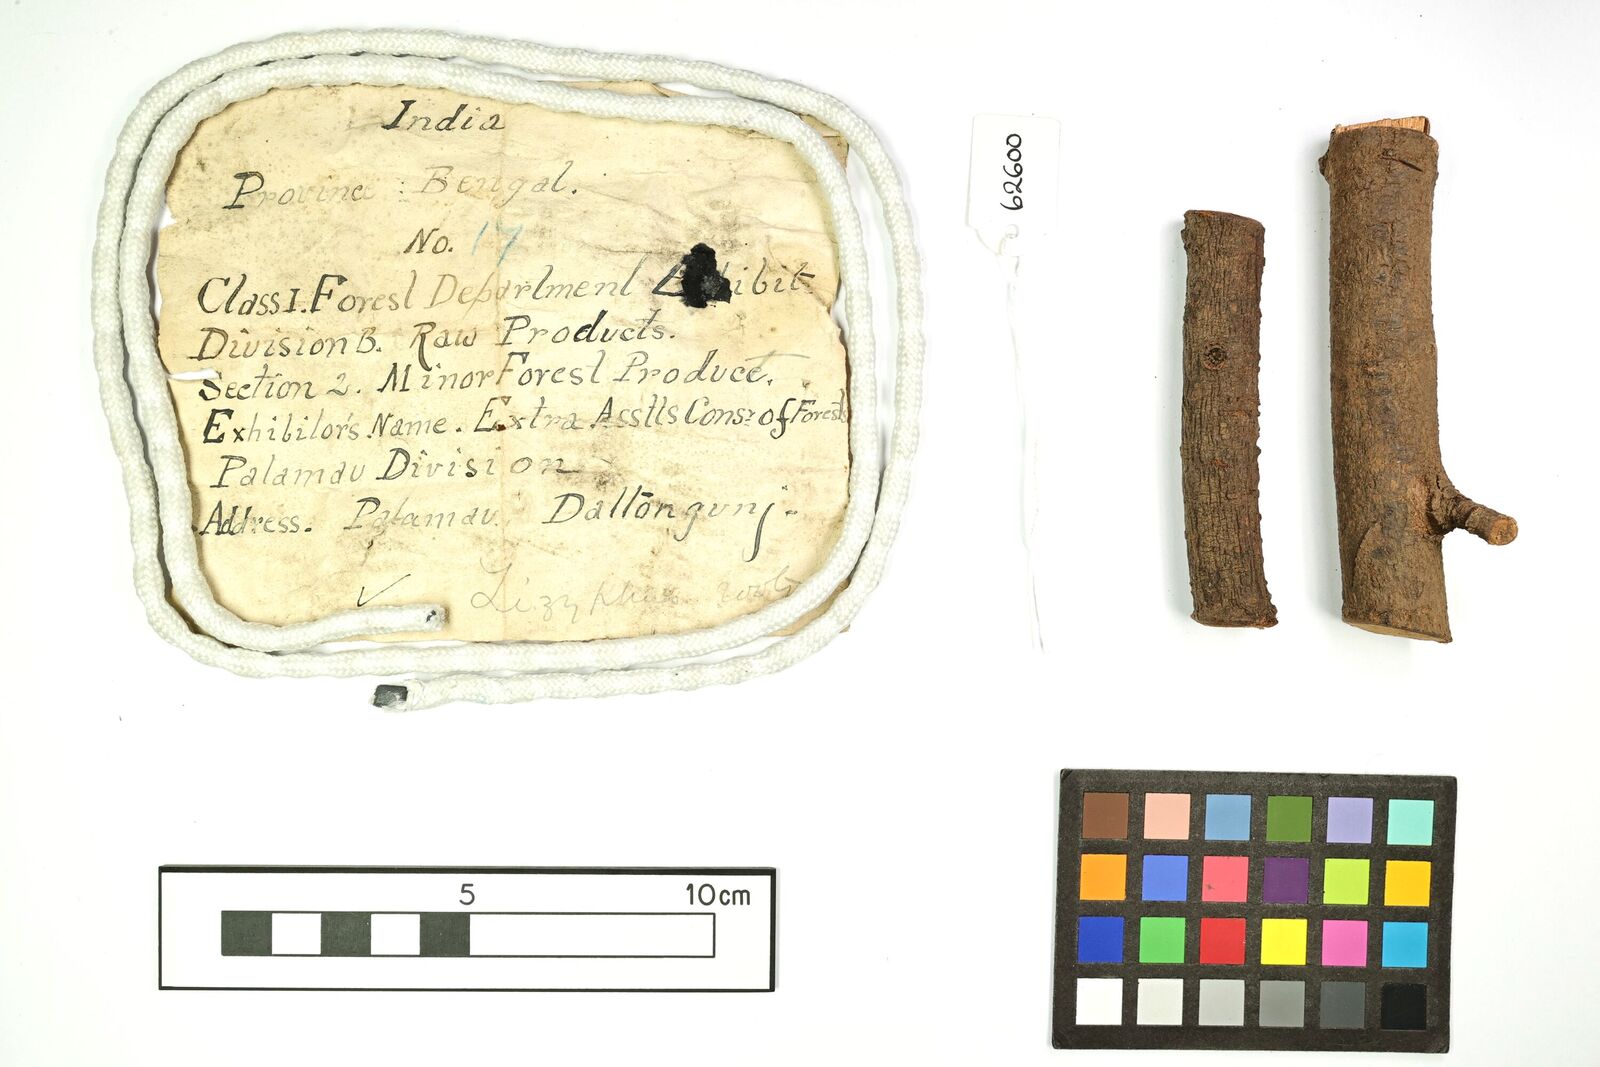 India
Province : Bengal.
No. 17
Class I. Forest Department Exhibit
Division B. Raw Products.
Section 2. Minor Forest Product.
Exhibitor's Name. Extra Asstts Consr of Forests
Palamau Division
Address. Palamau Daltongunj.
62600
5 10cm